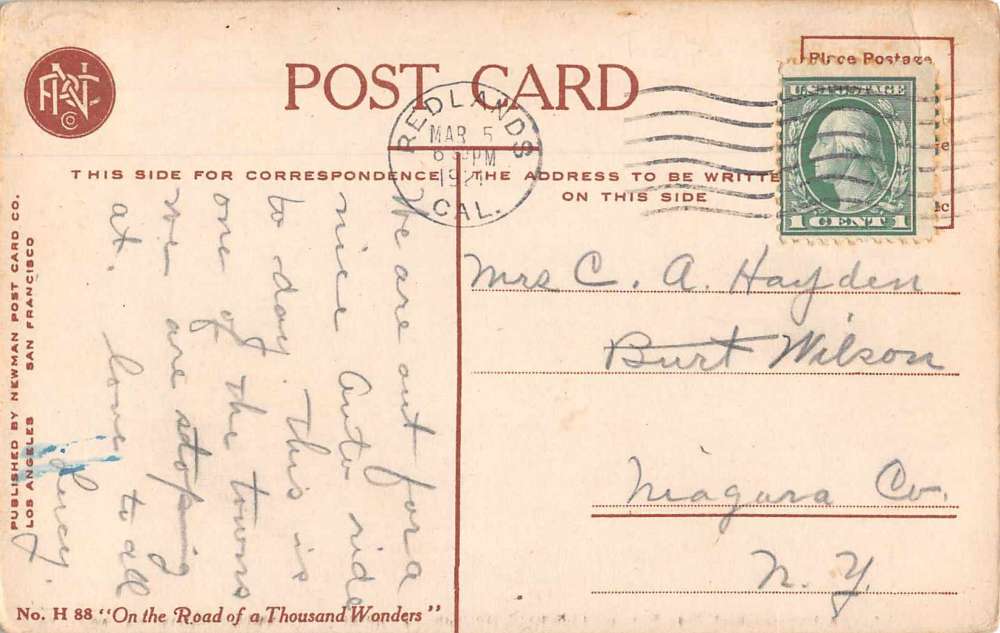 POST CARD
Place Postage
REDLANDS
MAR 5
PM
CAL.
U.S. POSTAGE
1 CENT 1
THIS SIDE FOR CORRESPONDENCE
THE ADDRESS TO BE WRITTE
ON THIS SIDE
We are out for a
nice Auto ride
to day. This is
one of the towns
we are stoping
at. love to all
Lucy.
Mrs C. A. Hayden
Burt Wilson
Niagara Co.
N. Y.
PUBLISHED BY NEWMAN POST CARD CO.
LOS ANGELES SAN FRANCISCO
No. H 88 "On the Road of a Thousand Wonders"